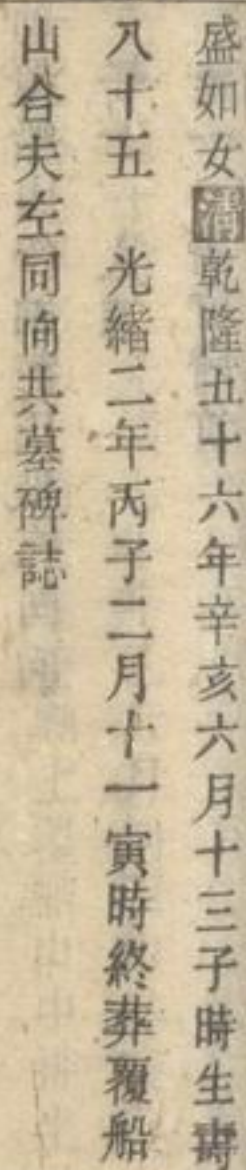 盛如女清乾隆五十六年辛亥六月十三子時生壽
八十五　光緒二年丙子二月十一寅時終葬覆船
山合夫左同向共墓碑誌